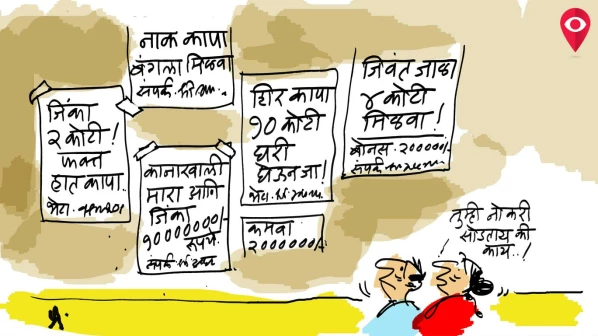 नाक कापा
बंगला मिळवा
संपर्क.
जिंका
२ कोटी!
फक्त
हात कापा.
भेटा.
कानाखाली
मारा आणि
जिंका
१००००००००/-
रूपये.
संपर्क.
शिर कापा
१० कोटी
घरी
घेऊन जा!
भेटा.
कमवा
२००००००/-
जिवंत जाळा
४ कोटी
मिळवा!
बोनस. २०००००/-
संपर्क
तुम्ही नोकरी
सोडताय की
काय..!